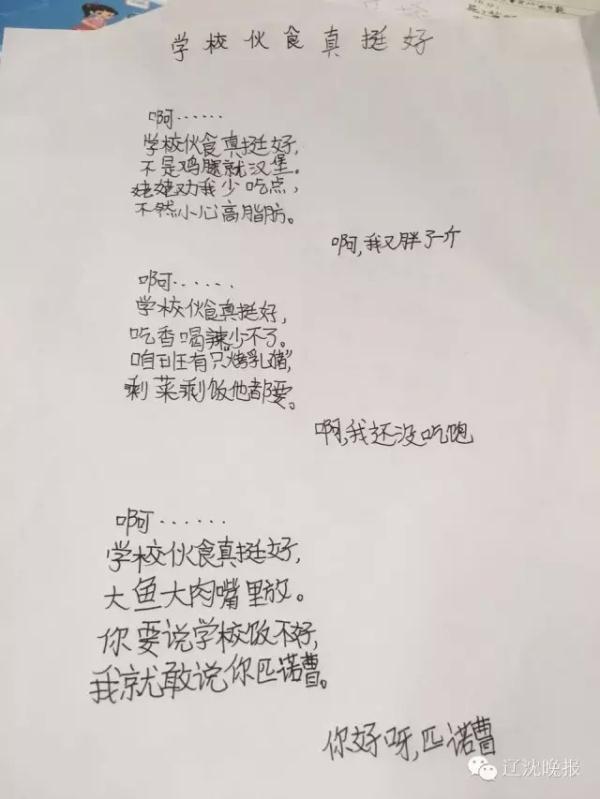 学校伙食真挺好
啊……
学校伙食真挺好,
不是鸡腿就汉堡。
姥姥劝我少吃点,
不然小心高脂肪。
啊,我又胖了一斤
啊……
学校伙食真挺好,
吃香喝辣少不了。
咱班有只“烤乳猪”,
剩菜剩饭他都要。
啊,我还没吃饱
啊……
学校伙食真挺好,
大鱼大肉嘴里放。
你要说学校饭不好,
我就敢说你匹诺曹。
你好呀,匹诺曹
辽沈晚报